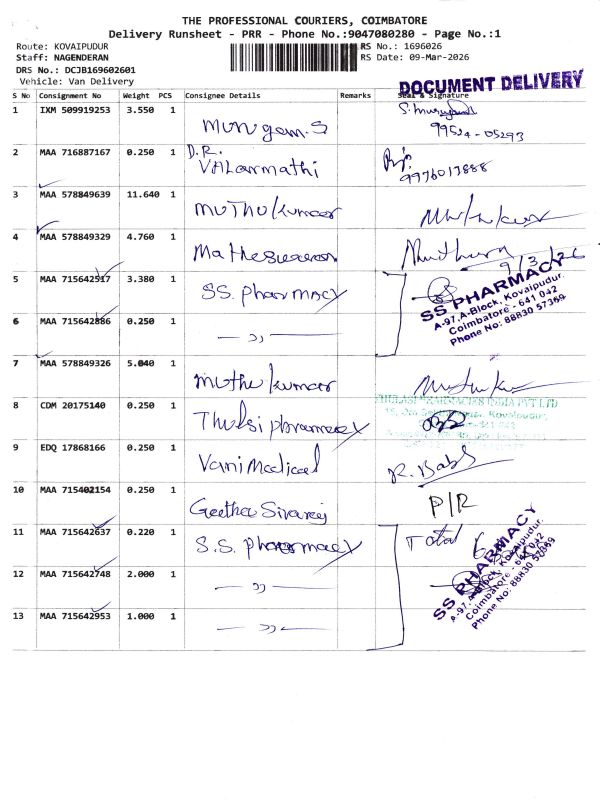 THE PROFESSIONAL COURIERS, COIMBATORE
Delivery Runsheet - PRR - Phone No.:9047080280 - Page No.:1
Route: KOVAIPUDUR
RS No.: 1696026
Staff: NAGENDERAN
RS Date: 09-Mar-2026
DRS No.: DCJB169602601
Vehicle: Van Delivery
DOCUMENT DELIVERY
S No Consignment No Weight PCS Consignee Details Remarks Seal & Signature
1 IXM 509919253 3.550 1 Murugam.S
99524-05293
2 MAA 716887167 0.250 1 D.R. VALarmathi
9976017888
3 MAA 578849639 11.640 1 MUTHU kumaar
4 MAA 578849329 4.760 1 Matheswaran
9/3/26
5 MAA 715642517 3.380 1 SS. pharmacy
SS PHARMACY
A-97, A-Block, Kovaipudur.
Coimbatore - 641 042
Phone No: 88830 57369
6 MAA 715642886 0.250 1 — ,, —
7 MAA 578849326 5.040 1 muthu kumaar
8 CDM 20175140 0.250 1 Thulasi pharmacy
THULASI PHARMACIES INDIA PVT LTD
Kovaipudur,
9 EDQ 17868166 0.250 1 Vani Medical
R. Babu
10 MAA 715402154 0.250 1 Geetha Sivaraj P/R
11 MAA 715642637 0.220 1 S.S. pharmacy Total 6
SS PHARMACY
A-97, A-Block, Kovaipudur.
Coimbatore - 641 042
Phone No: 88830 57369
12 MAA 715642748 2.000 1 — ,, —
13 MAA 715642953 1.000 1 — ,, —